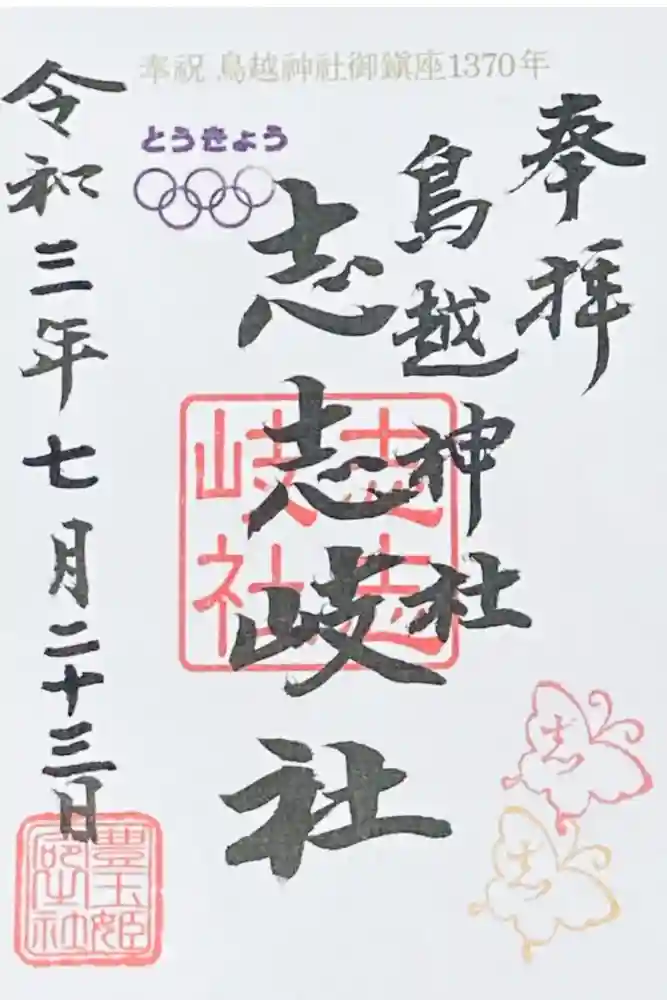 奉祝 鳥越神社御鎮座1370年
奉拝
鳥越神社
とうきょう
志志岐社
令和三年七月二十三日
志志
岐社
志
志
豊玉姫